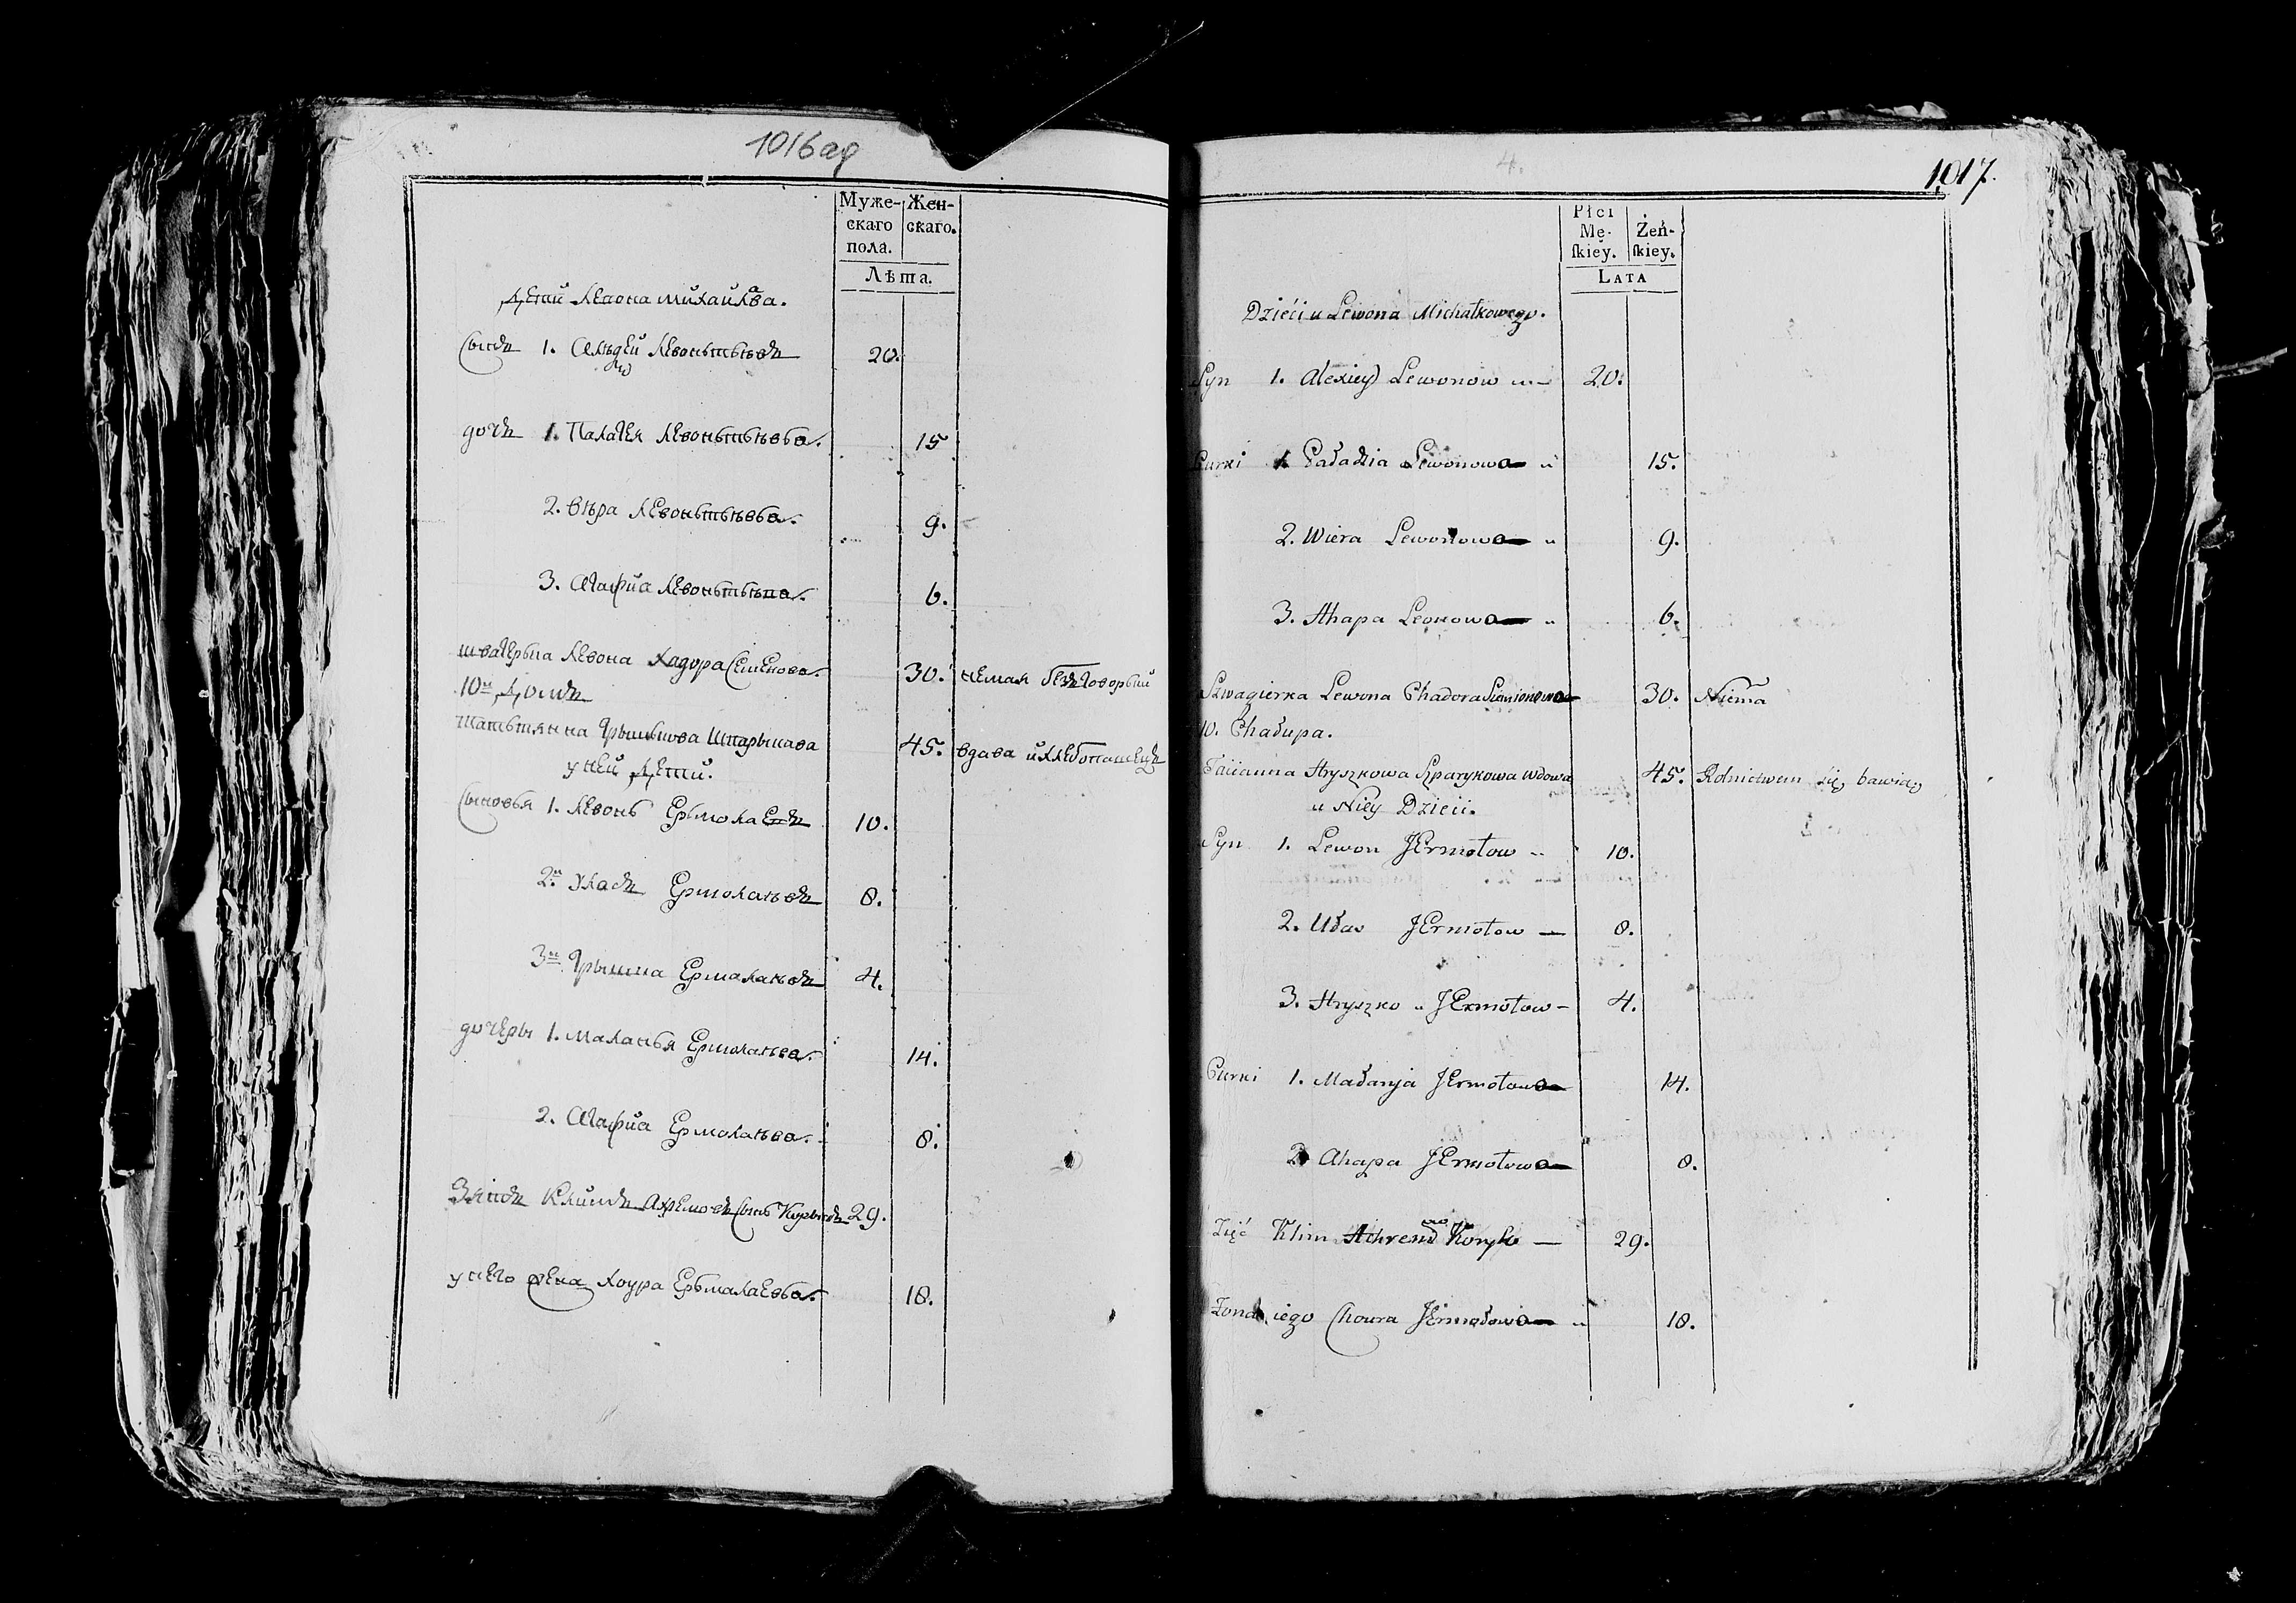 1016 ад
Муже-
скаго
пола.
Жен-
скаго.
Лѣта.
Дети Левона михайлва.
Сынъ 1. Алѣѯей Левоньтьѣвъ 20.
дочъ 1. Палагея Левоньтьѣва. 15
2. вѣра Левоньтьѣва. 9.
3. Агафиа Левоньтьѣва. 6.
швагерьна Левона Хадора Семенова. 30. немая безъговорьни
10й Домъ
Татьтянна Грышькова Шпарыкава 45. вдава и хлебопашецъ
у ней Дети.
Сыновья 1. Левонь Ерьмолаевъ 10.
2й Уласъ Ермолаѣвъ 8.
3й Грышка Ермалаѣвъ 4.
дочеры 1. Маланья Ермолаѣва. 14.
2. Агафиа Ермолаѣва. 8.
Зятъ Климъ Ахремовъ Сынь Корытъ 29.
у него жена Хоура Ерьмалаева. 18.
4.
1017.
Płci
Mę-
skiey.
Żeń-
skiey.
LATA
Dzieci u Lewona Michałkowego.
Syn 1. Alexiey Lewonow 20.
Curki 1. Paładzia Lewonowa 15.
2. Wiera Lewonowa 9.
3. Ahapa Leonowa 6.
Szwagierka Lewona Chadora Siemionowa 30. Niema
10. Chałupa.
Taiianna Hryszkowa Szparykowa wdowa 45. Rolnictwem się bawią
u Niey Dzieci.
Syn 1. Lewon JErmołow 10.
2. Ułas JErmołow 8.
3. Hryszko JErmołow 4.
Curki 1. Małanja JErmołowa 14.
2 Ahapa JErmołowa 8.
Zięć Klim Achrem Koryto 29.
Zona iego Choura JErmołowa 18.